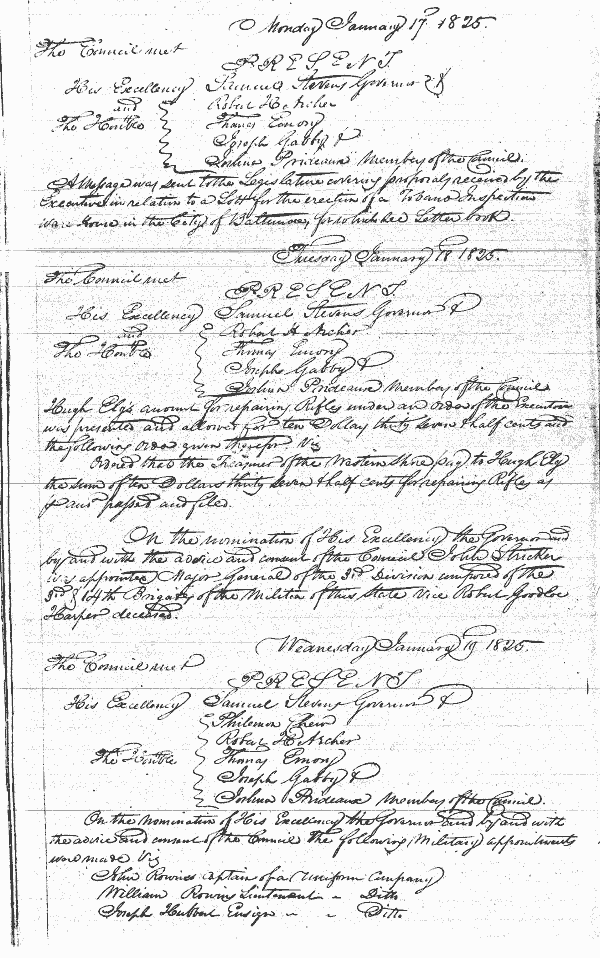 Monday January 17th 1825.
The Council met
PRESENT
His Excellency Samuel Stevens Governor &
and Robert H Archer
The Honble Thomas Emory
Joseph Gabby &
Joshua Prideaux Members of the Council.
A Message was sent to the Legislature covering proposals received by the
Executive in relation to a Lott for the erection of a Tobacco Inspection
Ware House in the City of Baltimore, for which see Letter book.
Tuesday January 18 1825.
The Council met
PRESENT.
His Excellency Samuel Stevens Governor &
and Robert H Archer
The Honble Thomas Emory
Joseph Gabby &
Joshua Prideaux Members of the Council
Hugh Ely's account for repairing Rifles under an order of the Executive
was presented and allowed for ten Dollars thirty seven & half cents and
the following order given therefor Viz
Ordered that the Treasurer of the Western Shore pay to Hugh Ely
the sum of ten Dollars thirty seven & half cents for repairing Rifles as
passed and filed.
On the nomination of His Excellency the Governor and
by and with the advice and consent of the Council John Stricker
was appointed Major General of the 3rd Division composed of the
3rd & 14th Brigades of the Militia of this State Vice Robert Goodloe
Harper deceased.
Wednesday January 19 1825.
The Council met
PRESENT
His Excellency Samuel Stevens Governor &
Philemon Chew
Robert H Archer
The Honble Thomas Emory
Joseph Gabby &
Joshua Prideaux Members of the Council.
On the nomination of His Excellency the Governor and by and with
the advice and consent of the Council the following Military appointments
were made Viz
John Rowins Captain of a Uniform Company
William Rowins Lieutenant " Ditto
Joseph Hubbert Ensign " " Ditto